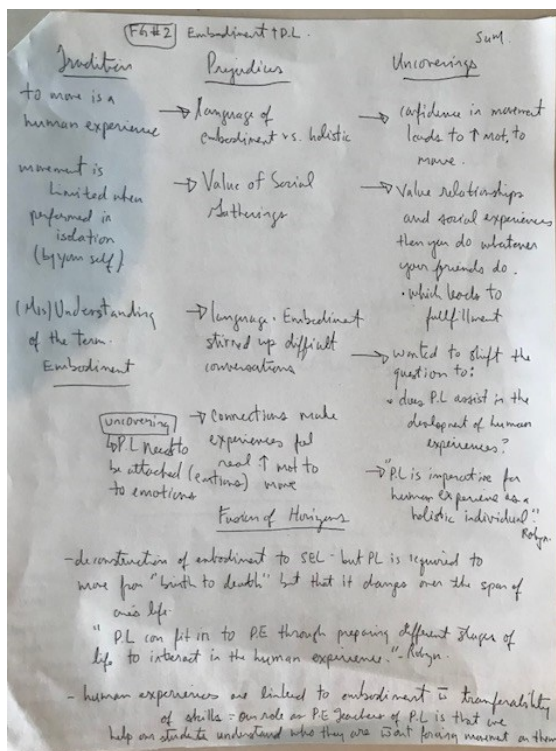 FG#2 Embodiment + P.L. Sum.
Tradition
to move is a
human experience
movement is
limited when
performed in
isolation
(by your self)
(Mis)Understanding
of the term.
Embodiment
Prejudices
→ language of
embodiment vs. holistic
→ Value of Social
Gatherings
→ language. Embodiment
stirred up difficult
conversations
uncovering
↳ P.L need to
be attached (emotions)
to emotions
→ Connections make
experiences feel
real ↑ mot to
move
Uncoverings
→ confidence in movement
leads to ↑ mot. to
move.
→ Value relationships
and social experiences
then you do whatever
your friends do.
• which leads to
fullfillment
→ wanted to shift the
question to:
• does P.L assist in the
development of human
experiences?
→ "P.L is imperative for
human experience as a
holistic individual".
Robyn.
Fusion of Horizons
- deconstruction of embodiment to SEL - but PL is required to
move from "birth to death" but that it changes over the span of
one's life.
"P.L can fit in to P.E through preparing different stages of
life to interact in the human experience." - Robyn.
- human experiences are linked to embodiment transferability
of skills = our role as P.E teachers of P.L is that we
help our students understand who they are forcing movement on them